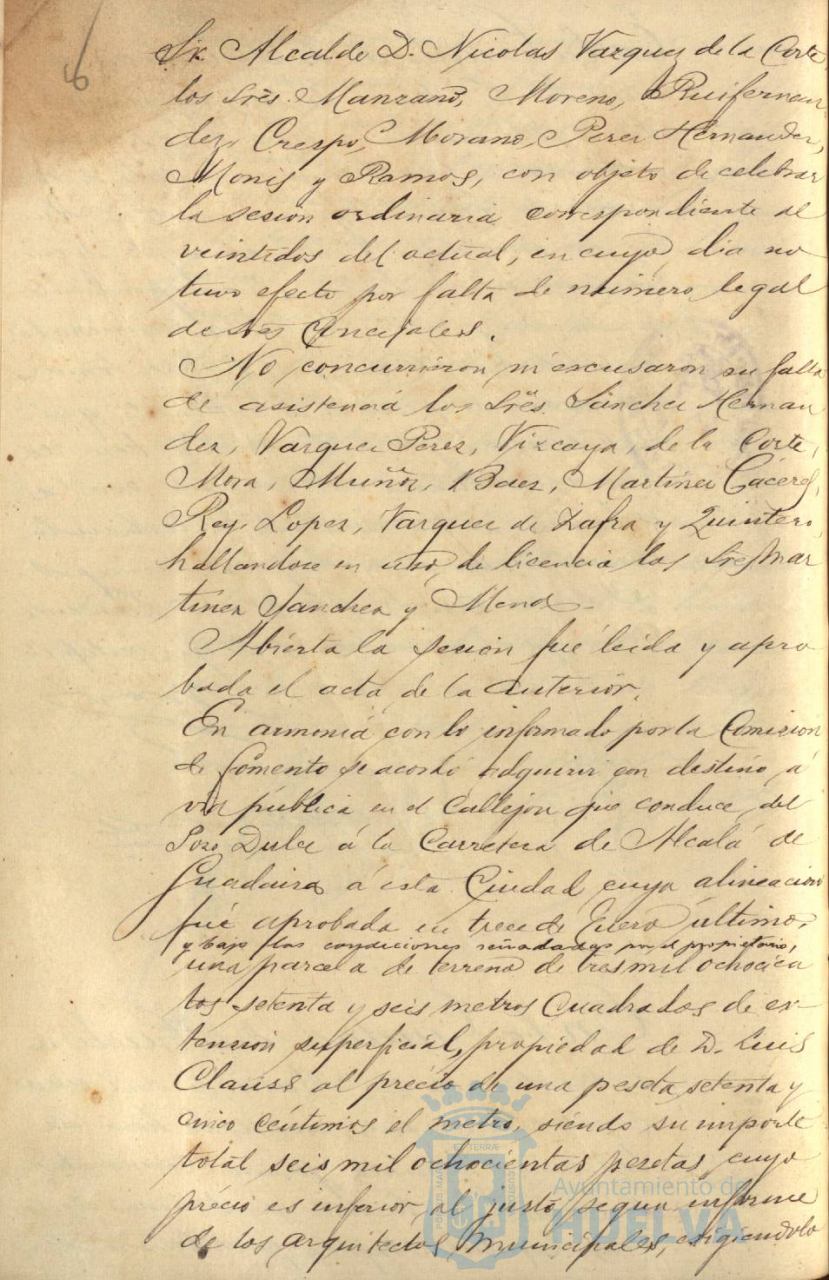 6
Sr. Alcalde D. Nicolas Vazquez de la Corte
los Srēs. Manzano, Moreno, Ruifernan
dez, Crespo, Morano, Perez Hernandez,
Monis y Ramos, con objeto de celebrar
la sesion ordinaria correspondiente al
veintidos del actual, en cuyo dia no
tuvo efecto por falta de número legal
de Srēs Concejales.
No concurrieron ni excusaron su falta
de asistencia los Srēs. Sánchez Hernan
dez, Vazquez Perez, Vizcaya, de la Corte,
Mora, Muñoz, Baez, Martinez Cáceres,
Rey, Lopez, Vazquez de Zafra y Quintero,
hallandose en uso de licencia los Sres Mar
tinez Sanchez y
Abierta la sesion fué leida y apro
bada el acta de la anterior.
En armonia con lo informado por la Comision
de Fomento se acordó adquirir con destino á
via pública en el Callejon que conduce del
Pozo Dulce á la Carretera de Alcalá de
Guadaira á esta Ciudad cuya alineacion
fué aprobada en trece de Enero último,
y bajo las condiciones señaladas por el propietario,
una parcela de terreno de tres mil ochocien
tos setenta y seis metros cuadrados de ex-
tension superficial, propiedad de D. Luis
Clauss al precio de una peseta setenta y
cinco céntimos el metro, siendo su importe
total seis mil ochocientas pesetas, cuyo
précio es inferior al justo, segun informe
de los arquitectos Municipales, exigiendolo
Ayuntamiento de
HUELVA